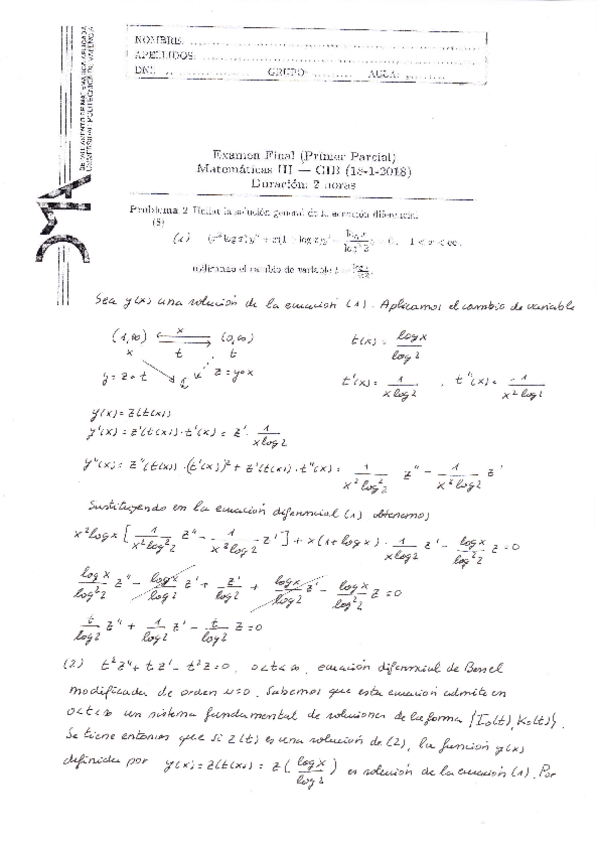 DEPARTAMENTO DE MATEMÁTICA APLICADA
UNIVERSIDAD POLITÉCNICA DE VALENCIA
DMA
NOMBRE:
APELLIDOS:
DNI: GRUPO: AULA:
Examen Final (Primer Parcial)
Matemáticas III — GIB (18-1-2018)
Duración: 2 horas
Problema 2 Hallar la solución general de la ecuación diferencial
(8)
(1) (x² log x) y'' + x(1 + log x) y' - log x / log² 2 y = 0, 1 < x < ∞,
utilizando el cambio de variable t = log x / log 2.
Sea y(x) una solución de la ecuación (1). Aplicamos el cambio de variable
(1,∞) x (0,∞) t(x) = log x / log 2
x t t
y = z∘t z = y∘x t'(x) = 1 / x log 2 , t''(x) = -1 / x² log 2
y(x) = z(t(x))
y'(x) = z'(t(x)) · t'(x) = z' · 1 / x log 2
y''(x) = z''(t(x)) · (t'(x))² + z'(t(x)) · t''(x) = 1 / x² log² 2 z'' - 1 / x² log 2 z'
Sustituyendo en la ecuación diferencial (1) obtenemos
x² log x [ 1 / x² log² 2 z'' - 1 / x² log 2 z' ] + x(1 + log x) · 1 / x log 2 z' - log x / log² 2 z = 0
log x / log² 2 z'' - log x / log 2 z' + z' / log 2 + log x / log 2 z' - log x / log² 2 z = 0
t / log 2 z'' + 1 / log 2 z' - t / log 2 z = 0
(2) t² z'' + t z' - t² z = 0, 0 < t < ∞, ecuación diferencial de Bessel
modificada de orden ν = 0. Sabemos que esta ecuación admite en
0 < t < ∞ un sistema fundamental de soluciones de la forma {I₀(t), K₀(t)}.
Se tiene entonces que si z(t) es una solución de (2), la función y(x)
definida por y(x) = z(t(x)) = z( log x / log 2 ) es solución de la ecuación (1). Por